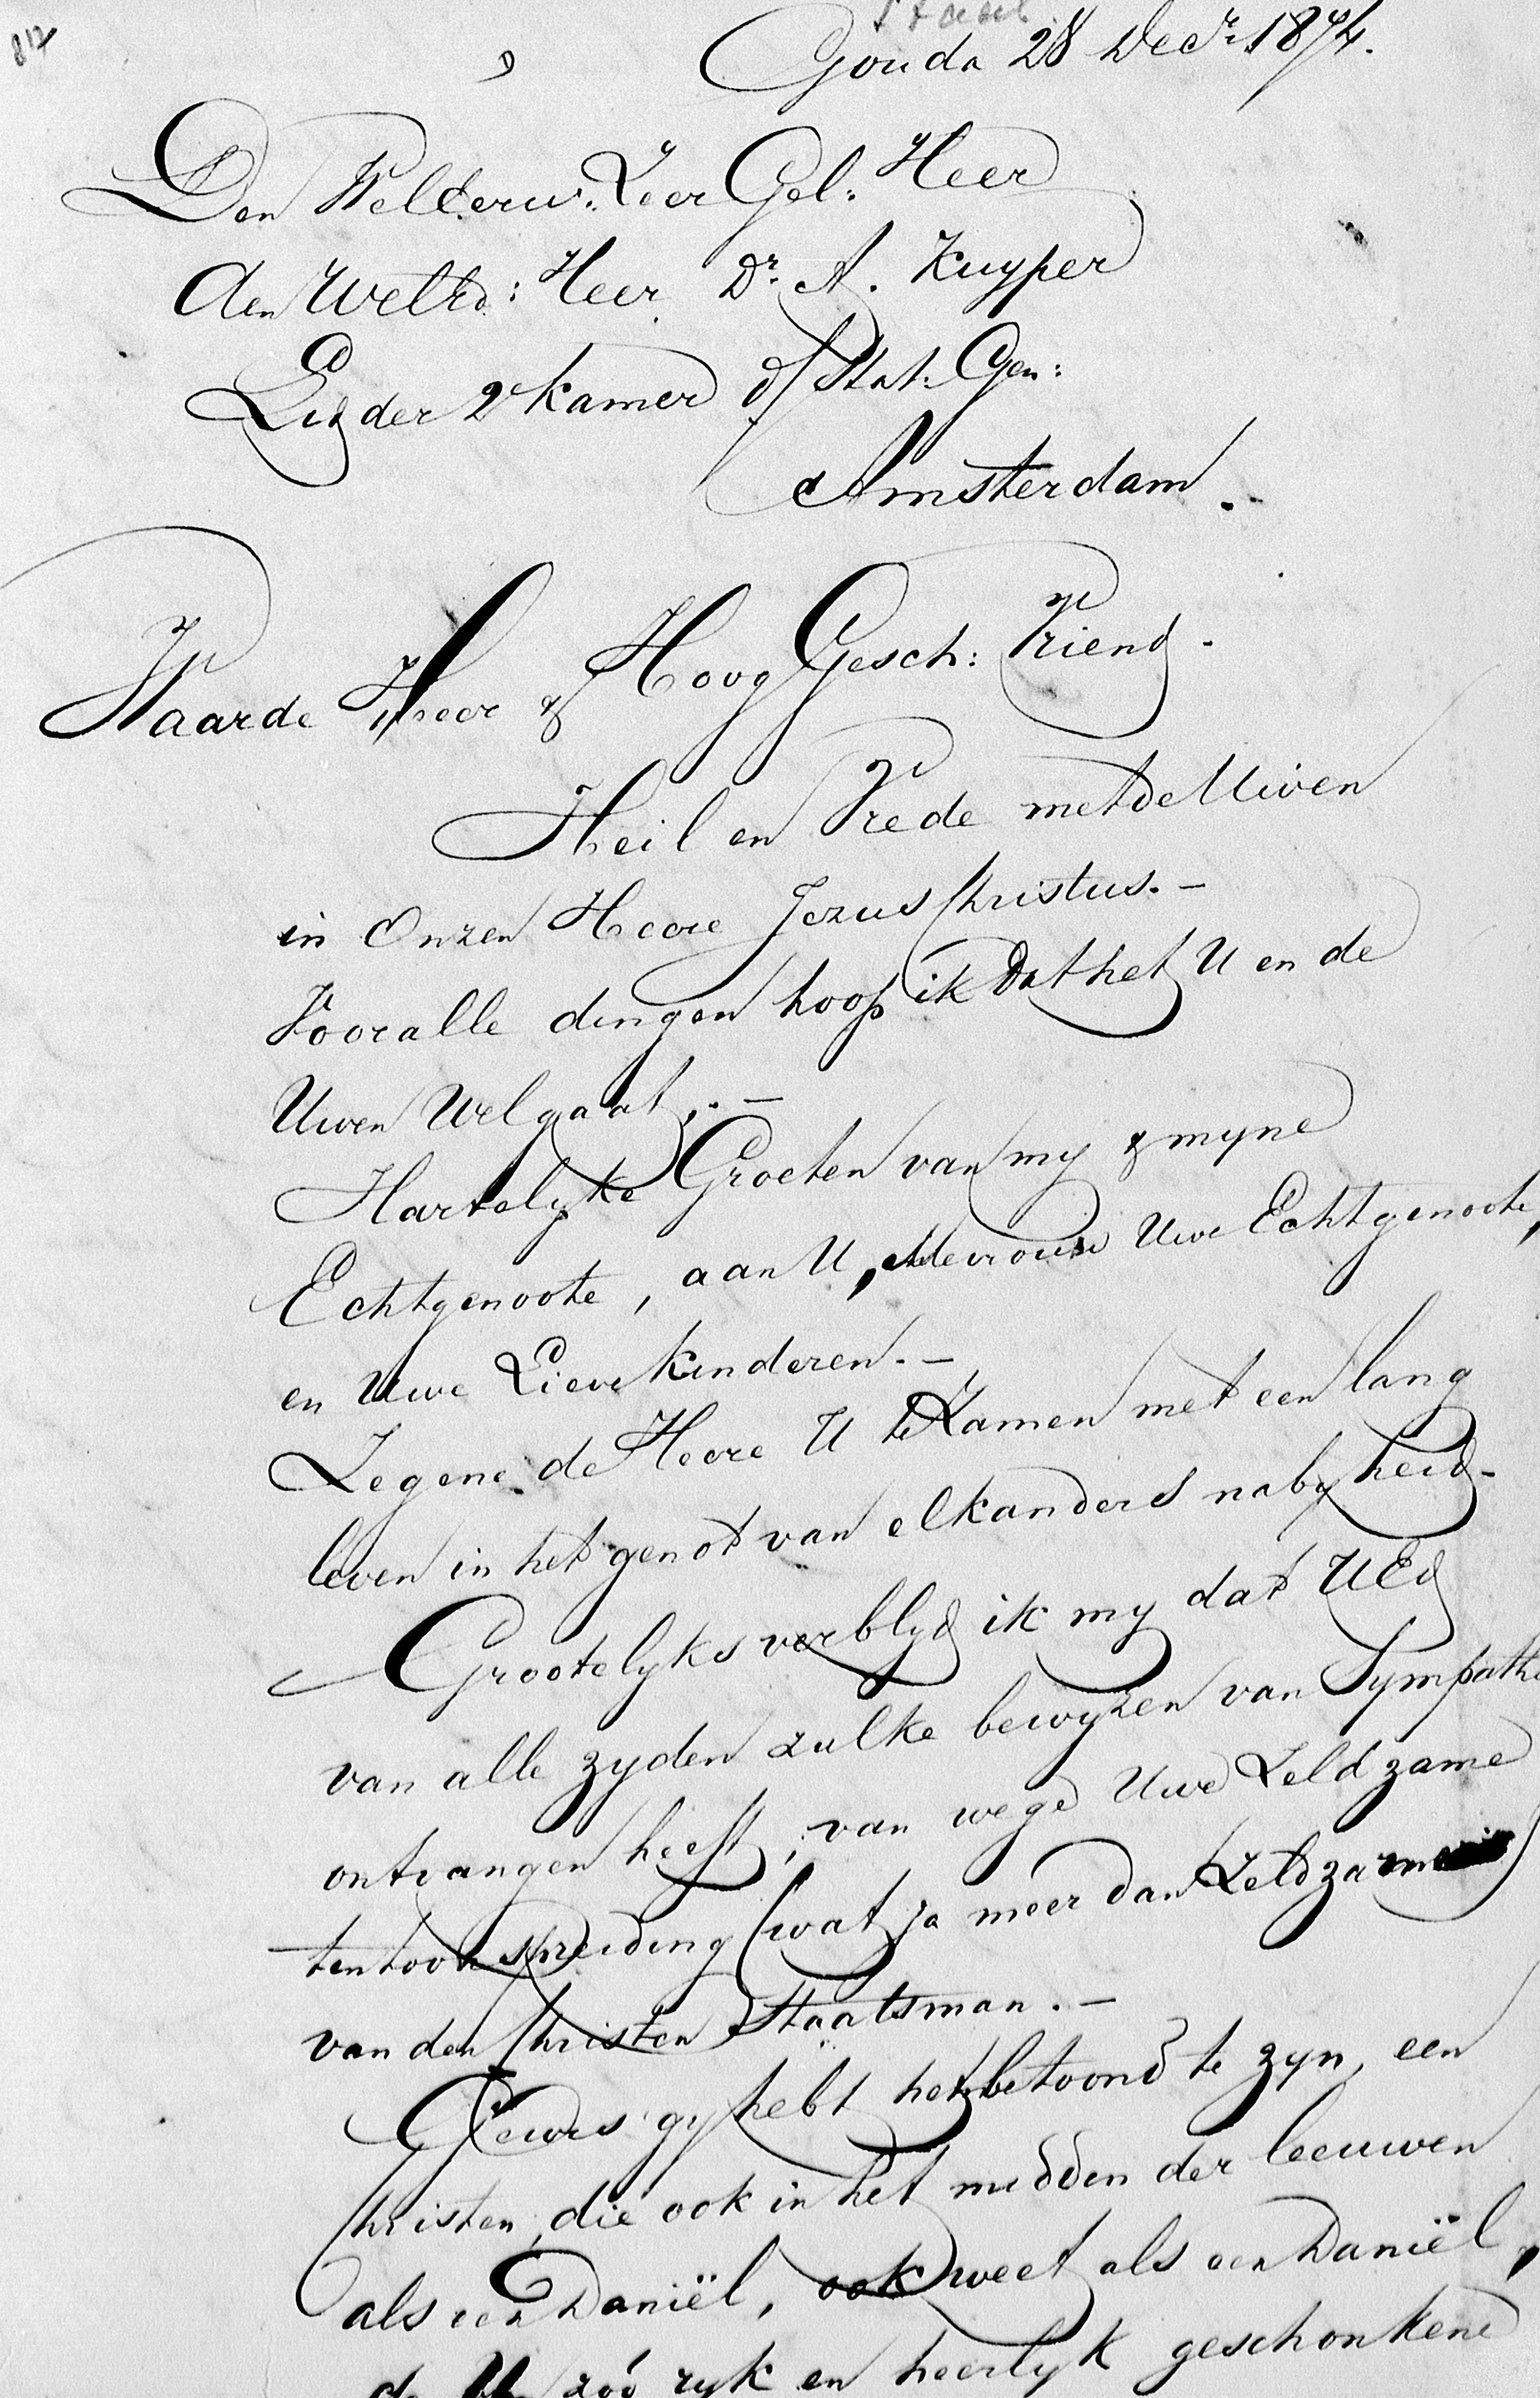 817
Gouda 28 Decr. 1874.
Den WelEerw. Zeer Gel: Heer
den WelEd: Heer Dr. A. Kuyper
Lid der 2e Kamer d/ Stat: Gen:
Amsterdam.
Waarde Heer & Hoog Gesch: Vriend.
Heil en Vrede met de Uwen
in Onzen Heere Jezus Christus.—
Voor alle dingen hoop ik dat het U en de
Uwen Wel gaat.—
Hartelyke Groeten van my & myne
Echtgenoote, aan U, Mevrouw Uwe Echtgenoote,
en Uwe Lieve kinderen.—
Zegene de Heere U te Zamen met een lang
leven in het genot van elkanders nabyheid.
Grootelyks verblyd ik my dat UEd
van alle zyden zulke bewyzen van Sympathi
ontvangen heeft, van wege Uwe Zeldzame
tentoonspreiding (wat ja meer dan Zeldzaam)
van den Christen Staatsman.—
Gewis gy hebt het betoond te zyn, een
Christen, die ook in het midden der leeuwen
als een Daniël, ook weet als een Daniël,
de U zóó ryk en heerlyk geschonkene